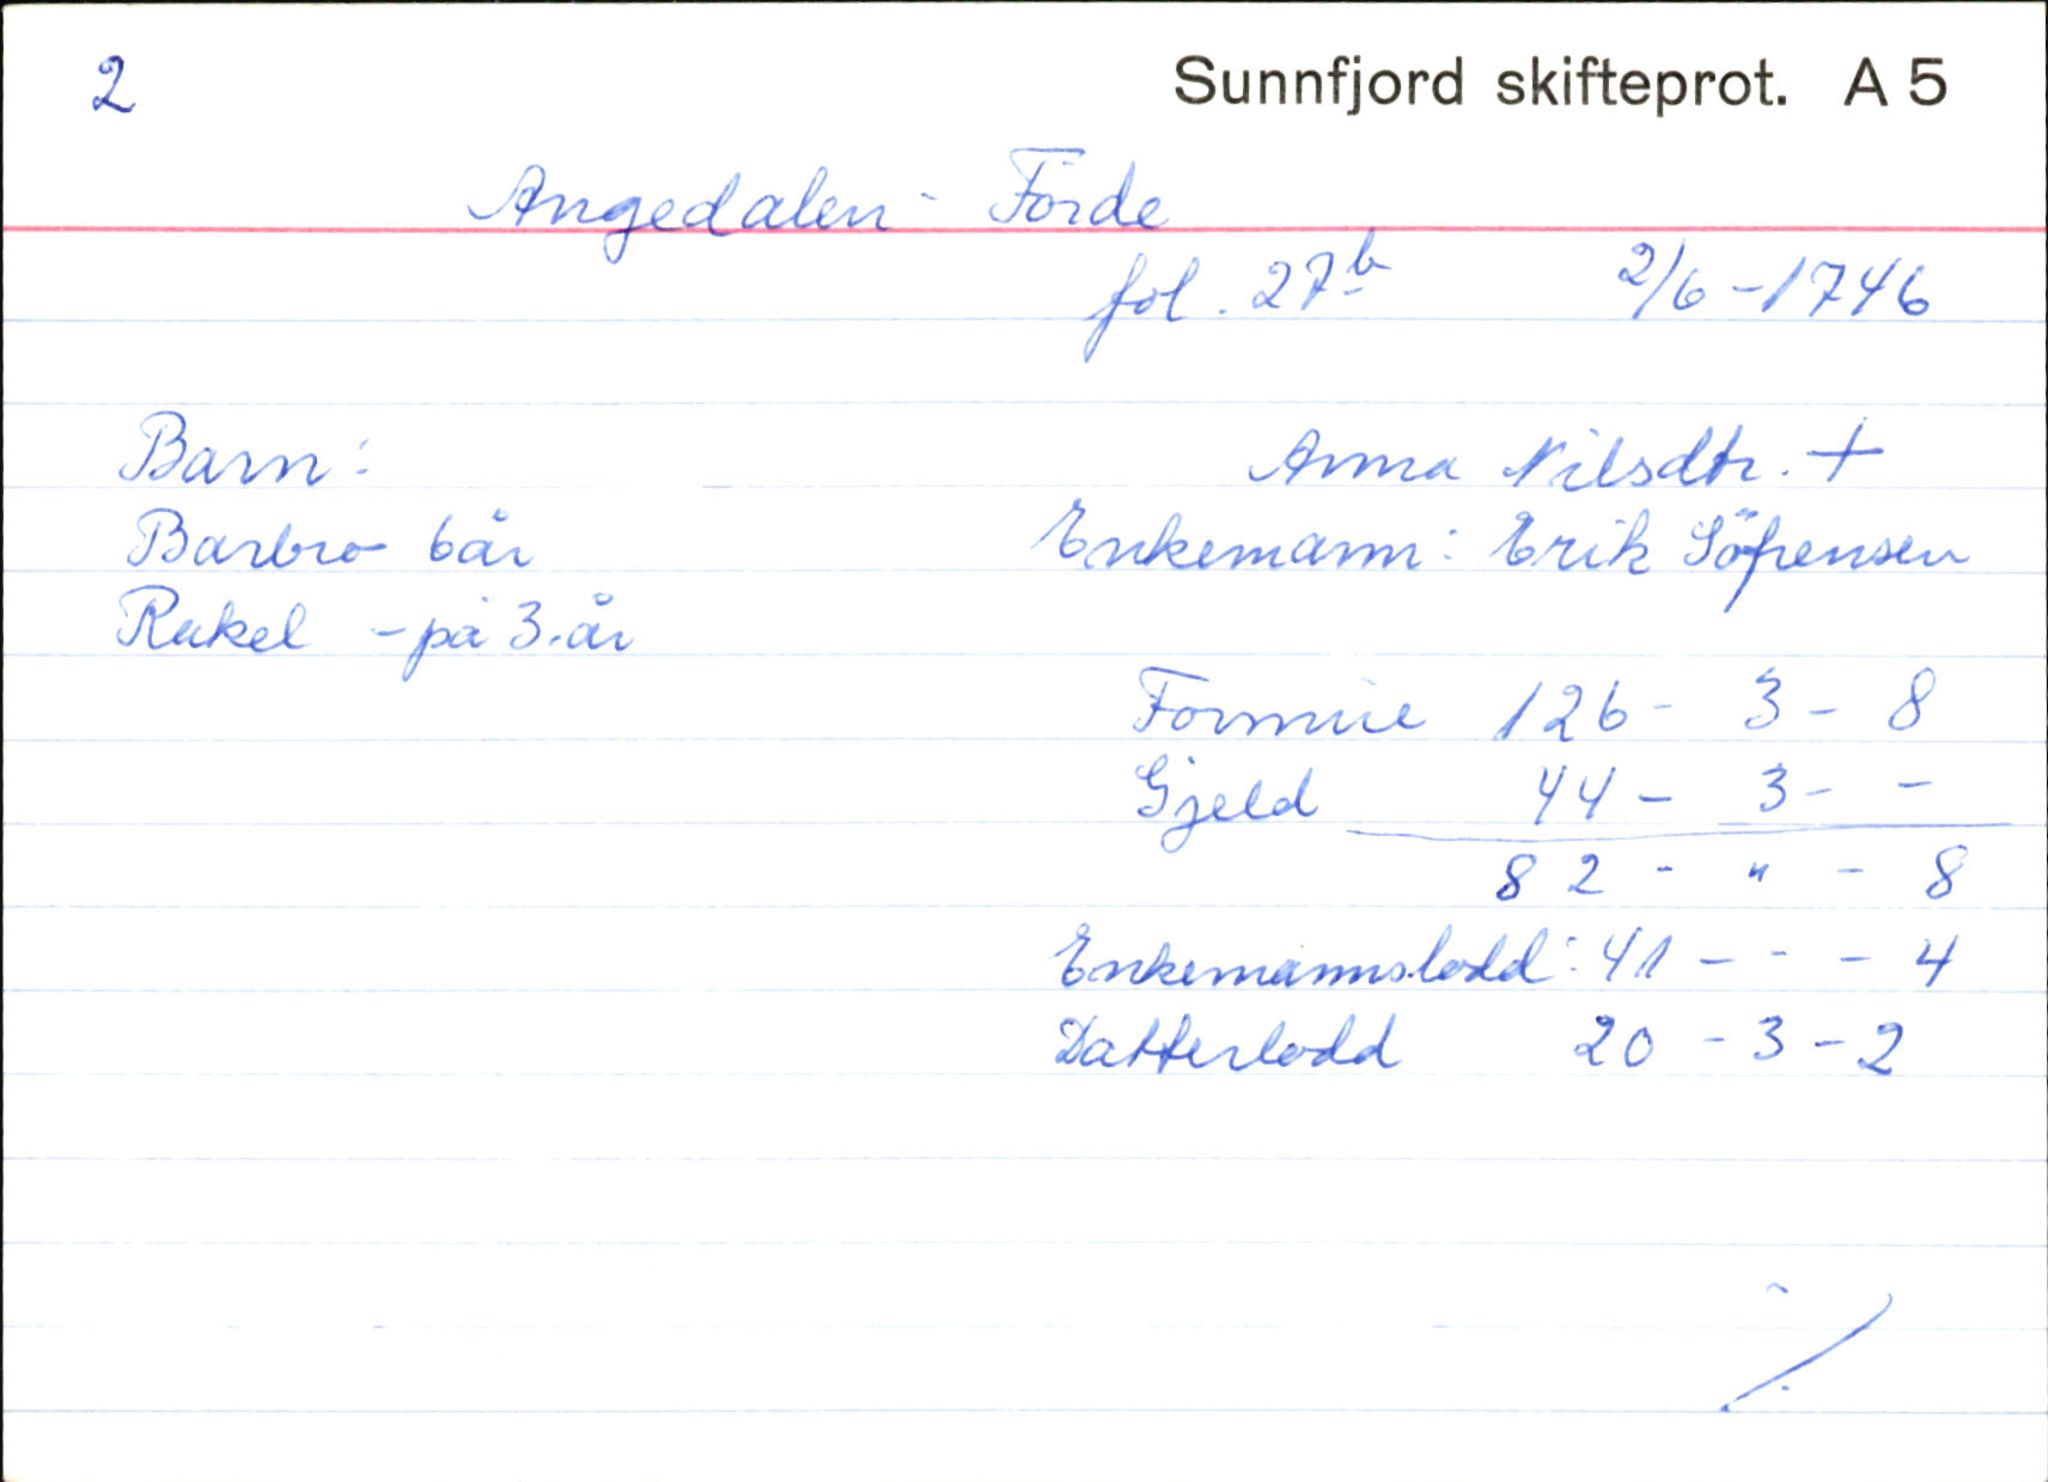 2 Sunnfjord skifteprot. A 5
Angedalen - Förde
fol. 27b 2/6 - 1746
Barn: Anna Nilsdtr. +
Barbro 6 år Enkemann: Erik Söfrensen
Rakel - på 3. år
Formue 126 - 3 - 8
Gjeld 44 - 3 - -
82 - " - 8
Enkemannslodd: 41 - - - 4
Datterlodd 20 - 3 - 2
./.